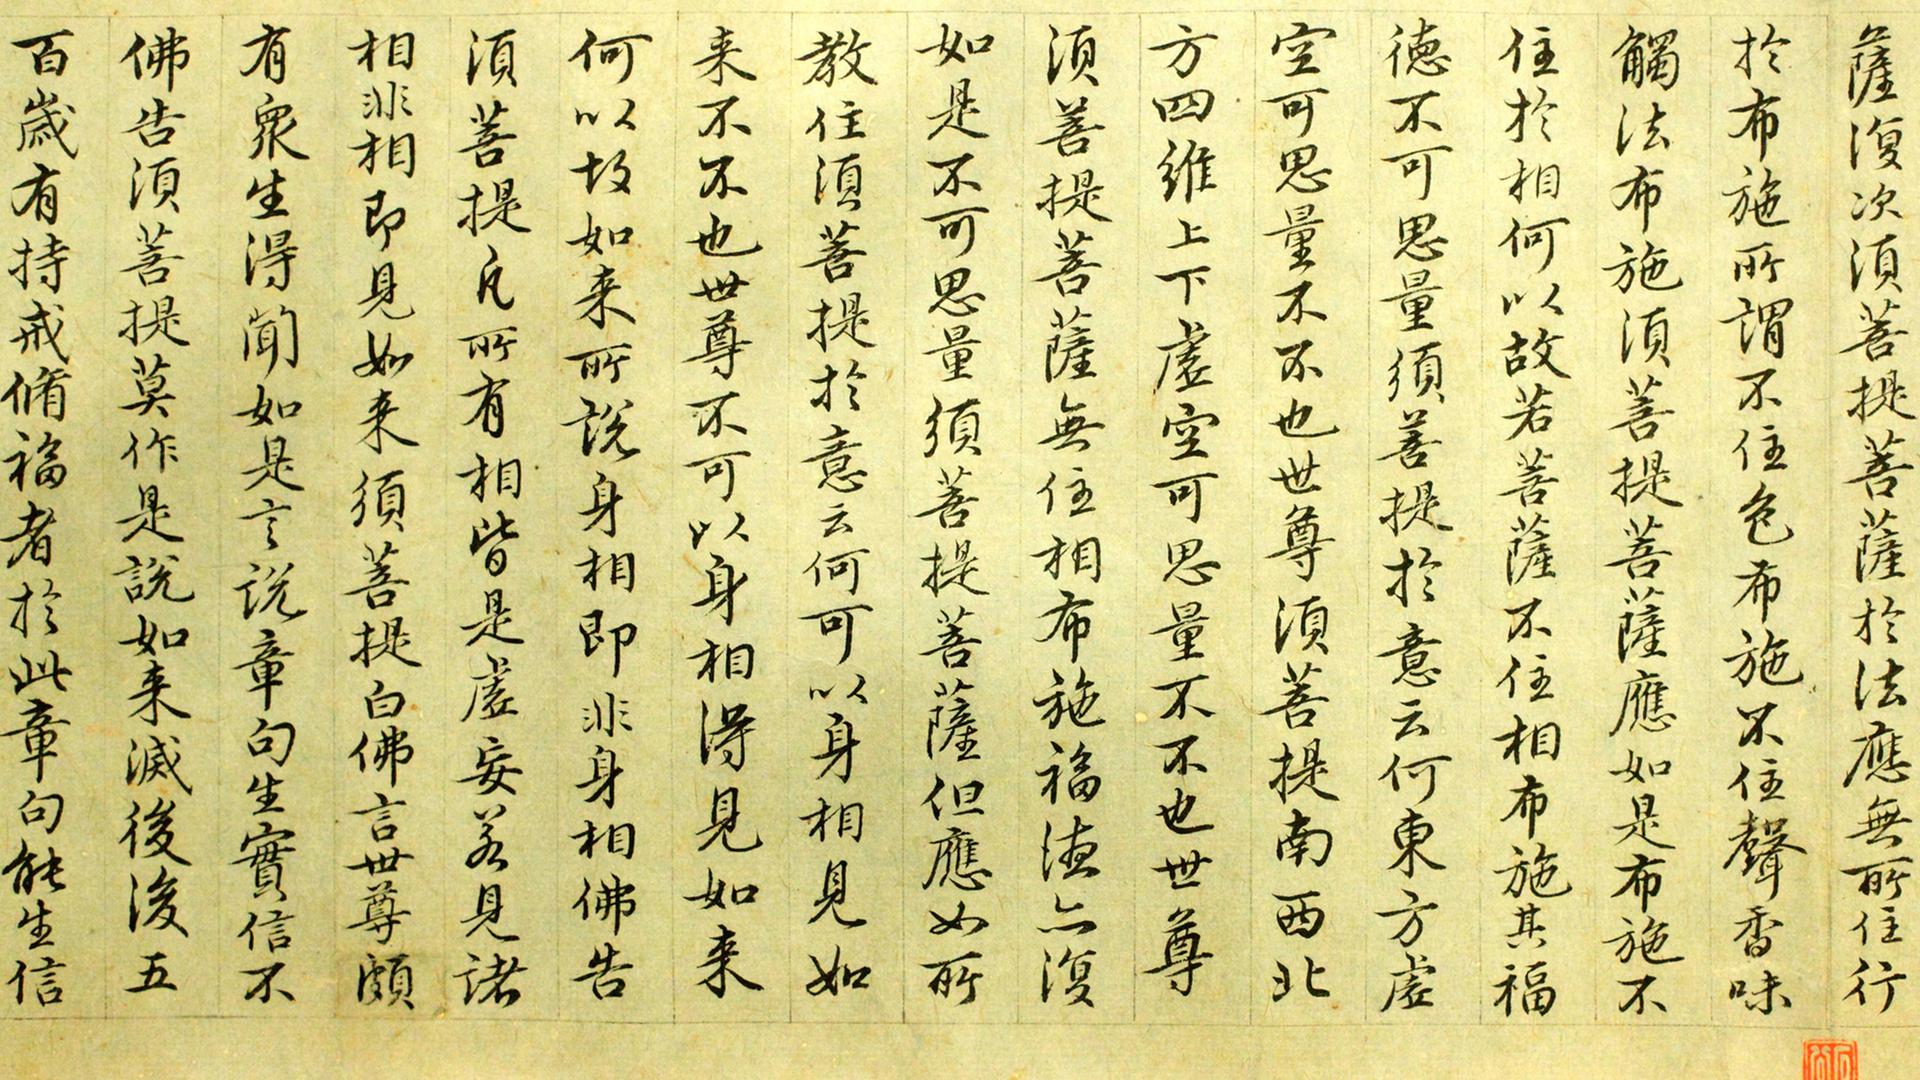 薩復次須菩提菩薩於法應無所住行
於布施所謂不住色布施不住聲香味
觸法布施須菩提菩薩應如是布施不
住於相何以故若菩薩不住相布施其福
德不可思量須菩提於意云何東方虛
空可思量不不也世尊須菩提南西北
方四維上下虛空可思量不不也世尊
須菩提菩薩無住相布施福德亦復
如是不可思量須菩提菩薩但應如所
教住須菩提於意云何可以身相見如
来不不也世尊不可以身相得見如来
何以故如来所說身相即非身相佛告
須菩提凡所有相皆是虛妄若見諸
相非相即見如来須菩提白佛言世尊頗
有衆生得聞如是言說章句生實信不
佛告須菩提莫作是說如来滅後後五
百歲有持戒脩福者於此章句能生信